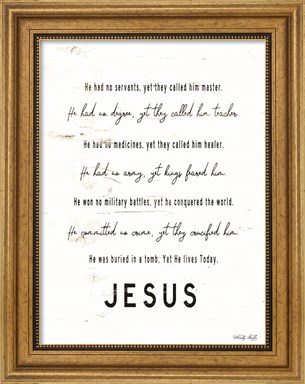 He had no servants, yet they called him master.
He had no degree, yet they called him teacher.
He had no medicines, yet they called him healer.
He had no army, yet kings feared him.
He won no military battles, yet he conquered the world.
He committed no crime, yet they crucified him.
He was buried in a tomb, Yet He lives Today.
JESUS